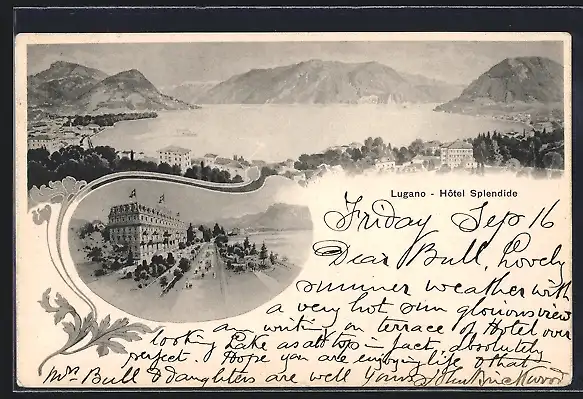 Lugano - Hôtel Splendide
Friday Sep 16
Dear Bull, Lovely
summer weather with
a very hot sun glorious view
am writing on terrace of Hotel over
looking Lake as at top in fact absolutely
perfect. Hope you are enjoying life & that
Mrs Bull & daughters are well Yours John